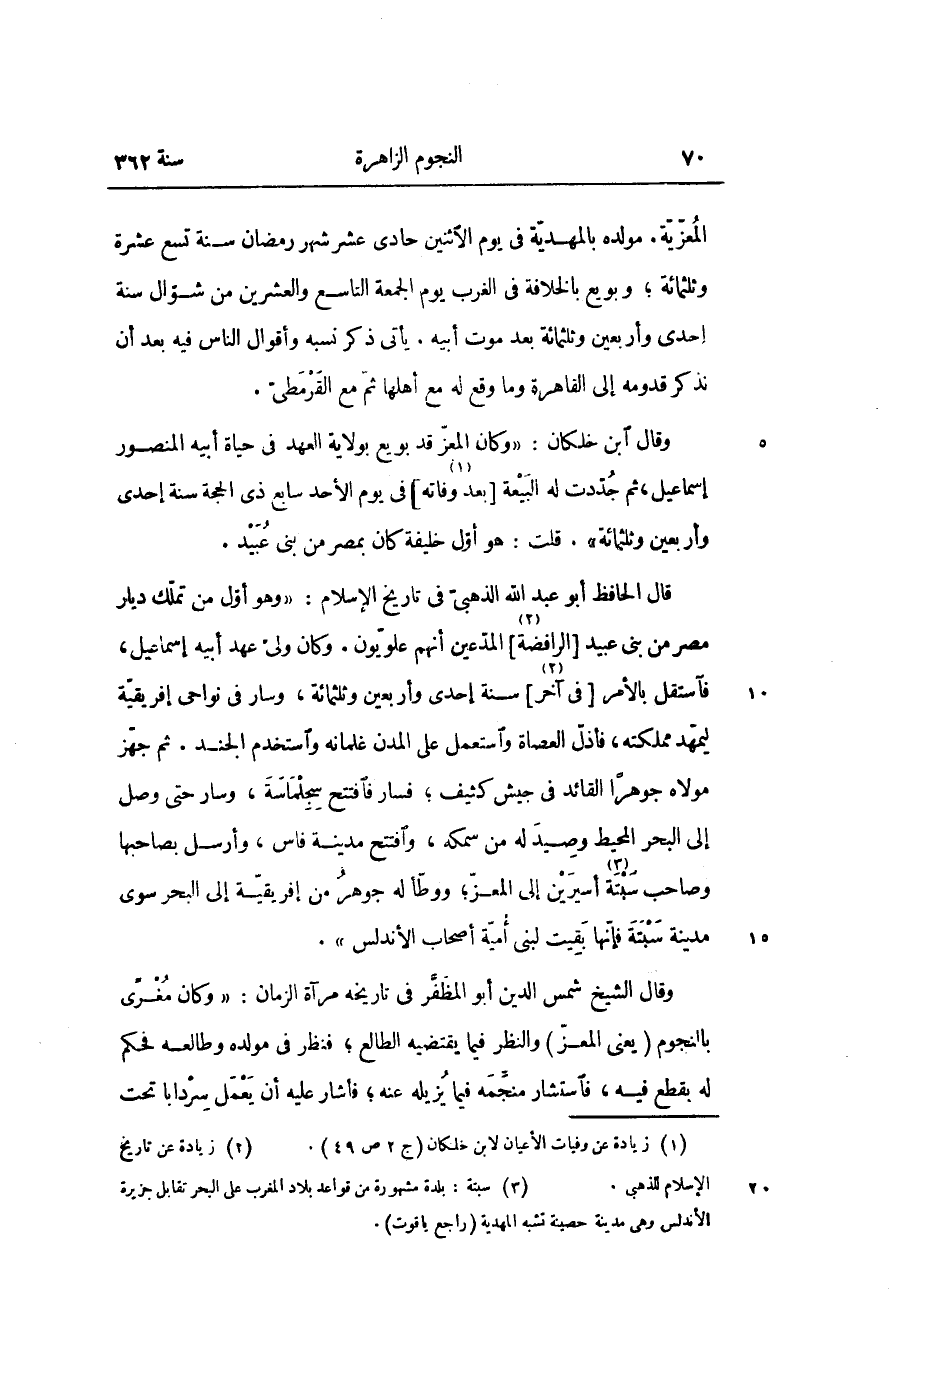 ٧٠ النجوم الزاهرة سنة ٣٦٢
المُعزّيّة. مولده بالمهديّة فى يوم الآثنين حادى عشر شهر رمضان سنة تسع عشرة
وثلثمائة ؛ وبويع بالخلافة فى الغرب يوم الجمعة التاسع والعشرين من شوّال سنة
إحدى وأربعين وثلثمائة بعد موت أبيه . يأتى ذكر نسبه وأقوال الناس فيه بعد أن
نذكر قدومه إلى القاهرة وما وقع له مع أهلها ثمّ مع القَرْمَطىّ .
٥ وقال آبن خلكان : «وكان المعزّ قد بويع بولاية العهد فى حياة أبيه المنصور
إسماعيل، ثم جُدّدت له البَيْعة [بعد وفاته](١) فى يوم الأحد سابع ذى الحجة سنة إحدى
وأربعين وثلثمائة» . قلت : هو أوّل خليفة كان بمصر من بنى عُبَيْد .
قال الحافظ أبو عبد الله الذهبىّ فى تاريخ الإسلام : «وهو أوّل من تملّك ديار
مصر من بنى عبيد [الرافضة](٢) المدّعين أنهم علويّون . وكان ولىّ عهد أبيه إسماعيل،
١٠ فآستقل بالأمر [فى آخر](٢) سنة إحدى وأربعين وثلثمائة ، وسار فى نواحى إفريقيّة
ليمهّد مملكته، فأذلّ العصاة وآستعمل على المدن غلمانه وآستخدم الجند . ثم جهّز
مولاه جوهرًا القائد فى جيش كثيف ؛ فسار فآفتتح سِجِلْمَاسَةَ ، وسار حتى وصل
إلى البحر المحيط وصِيدَ له من سمكه ، وآفتتح مدينة فاس ، وأرسل بصاحبها
وصاحب سَبْتَة(٣) أسيرَيْن إلى المعزّ؛ ووطّأ له جوهرُ من إفريقيّة إلى البحر سوى
١٥ مدينة سَبْتَةَ فإنّها بَقِيت لبنى أُميّة أصحاب الأندلس » .
وقال الشيخ شمس الدين أبو المظَفَّر فى تاريخه مرآة الزمان : « وكان مُغْرًى
بالنجوم ( يعنى المعزّ ) والنظر فيما يقتضيه الطالع ؛ فنظر فى مولده وطالعه فحكم
له بقطع فيه ، فآستشار منجّمَه فيما يُزيله عنه ؛ فأشار عليه أن يَعْمَل سِرْدابا تحت
(١) زيادة عن وفيات الأعيان لابن خلكان (ج ٢ ص ٤٩) . (٢) زيادة عن تاريخ
٢٠ الإسلام للذهبى . (٣) سبتة : بلدة مشهورة من قواعد بلاد المغرب على البحر تقابل جزيرة
الأندلس وهى مدينة حصينة تشبه المهدية (راجع ياقوت) .